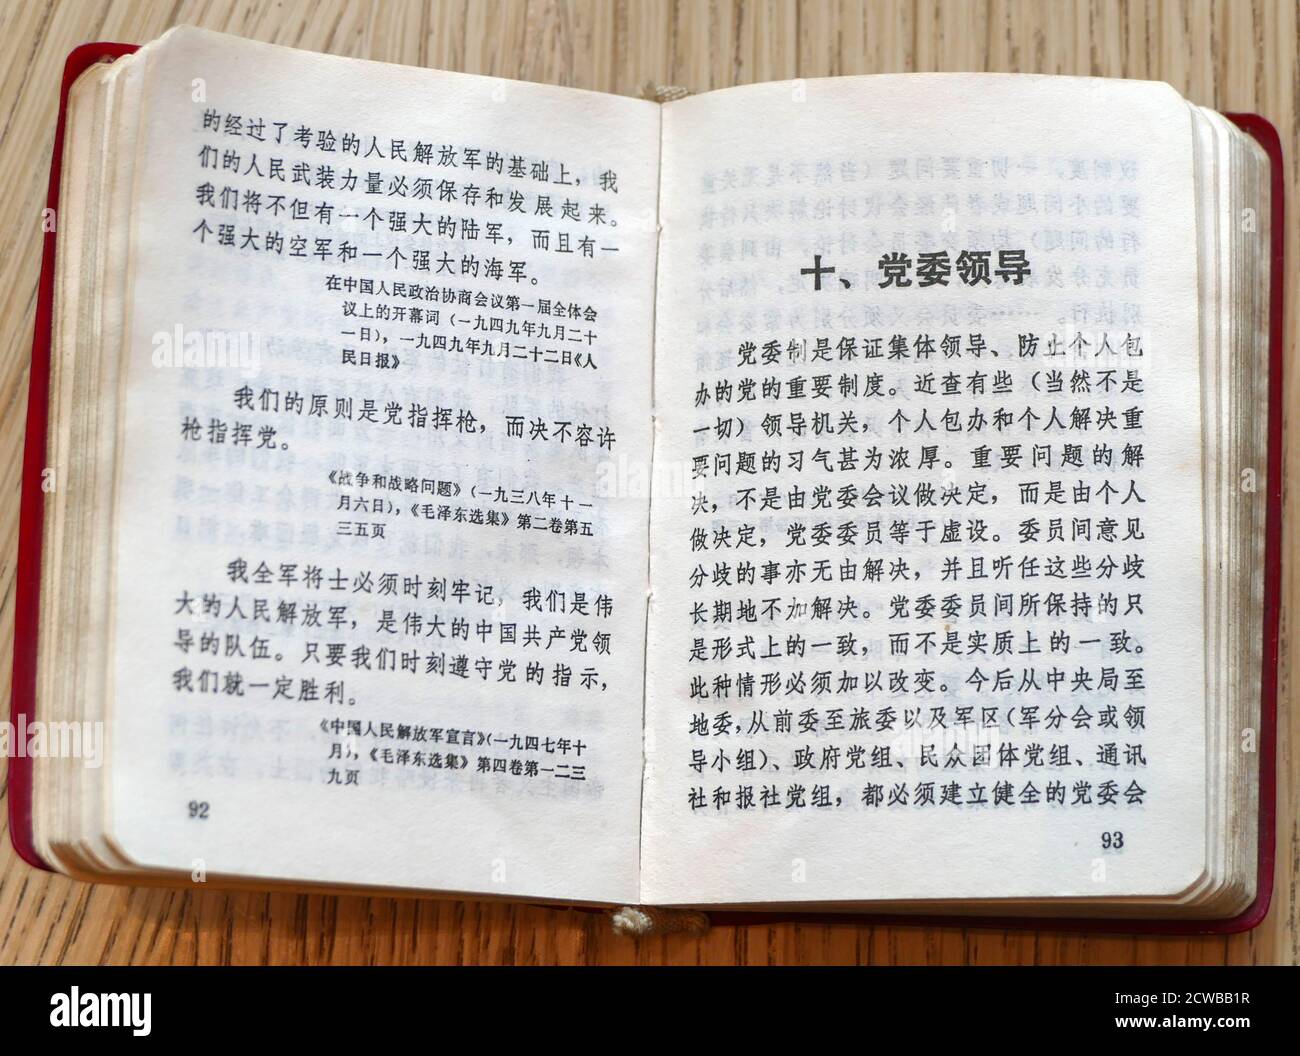 的经过了考验的人民解放军的基础上，我
们的人民武装力量必须保存和发展起来。
我们将不但有一个强大的陆军，而且有一
个强大的空军和一个强大的海军。
在中国人民政治协商会议第一届全体会
议上的开幕词（一九四九年九月二十
一日），一九四九年九月二十二日《人
民日报》
我们的原则是党指挥枪，而决不容许
枪指挥党。
《战争和战略问题》（一九三八年十一
月六日），《毛泽东选集》第二卷第五
三五页
我全军将士必须时刻牢记，我们是伟
大的人民解放军，是伟大的中国共产党领
导的队伍。只要我们时刻遵守党的指示，
我们就一定胜利。
《中国人民解放军宣言》（一九四七年十
月），《毛泽东选集》第四卷第一二三
九页
92
十、党委领导
党委制是保证集体领导、防止个人包
办的党的重要制度。近查有些（当然不是
一切）领导机关，个人包办和个人解决重
要问题的习气甚为浓厚。重要问题的解
决，不是由党委会议做决定，而是由个人
做决定，党委委员等于虚设。委员间意见
分歧的事亦无由解决，并且听任这些分歧
长期地不加解决。党委委员间所保持的只
是形式上的一致，而不是实质上的一致。
此种情形必须加以改变。今后从中央局至
地委，从前委至旅委以及军区（军分会或领
导小组）、政府党组、民众团体党组、通讯
社和报社党组，都必须建立健全的党委会
93
alamy
Image ID: 2CWBB1R
www.alamy.com